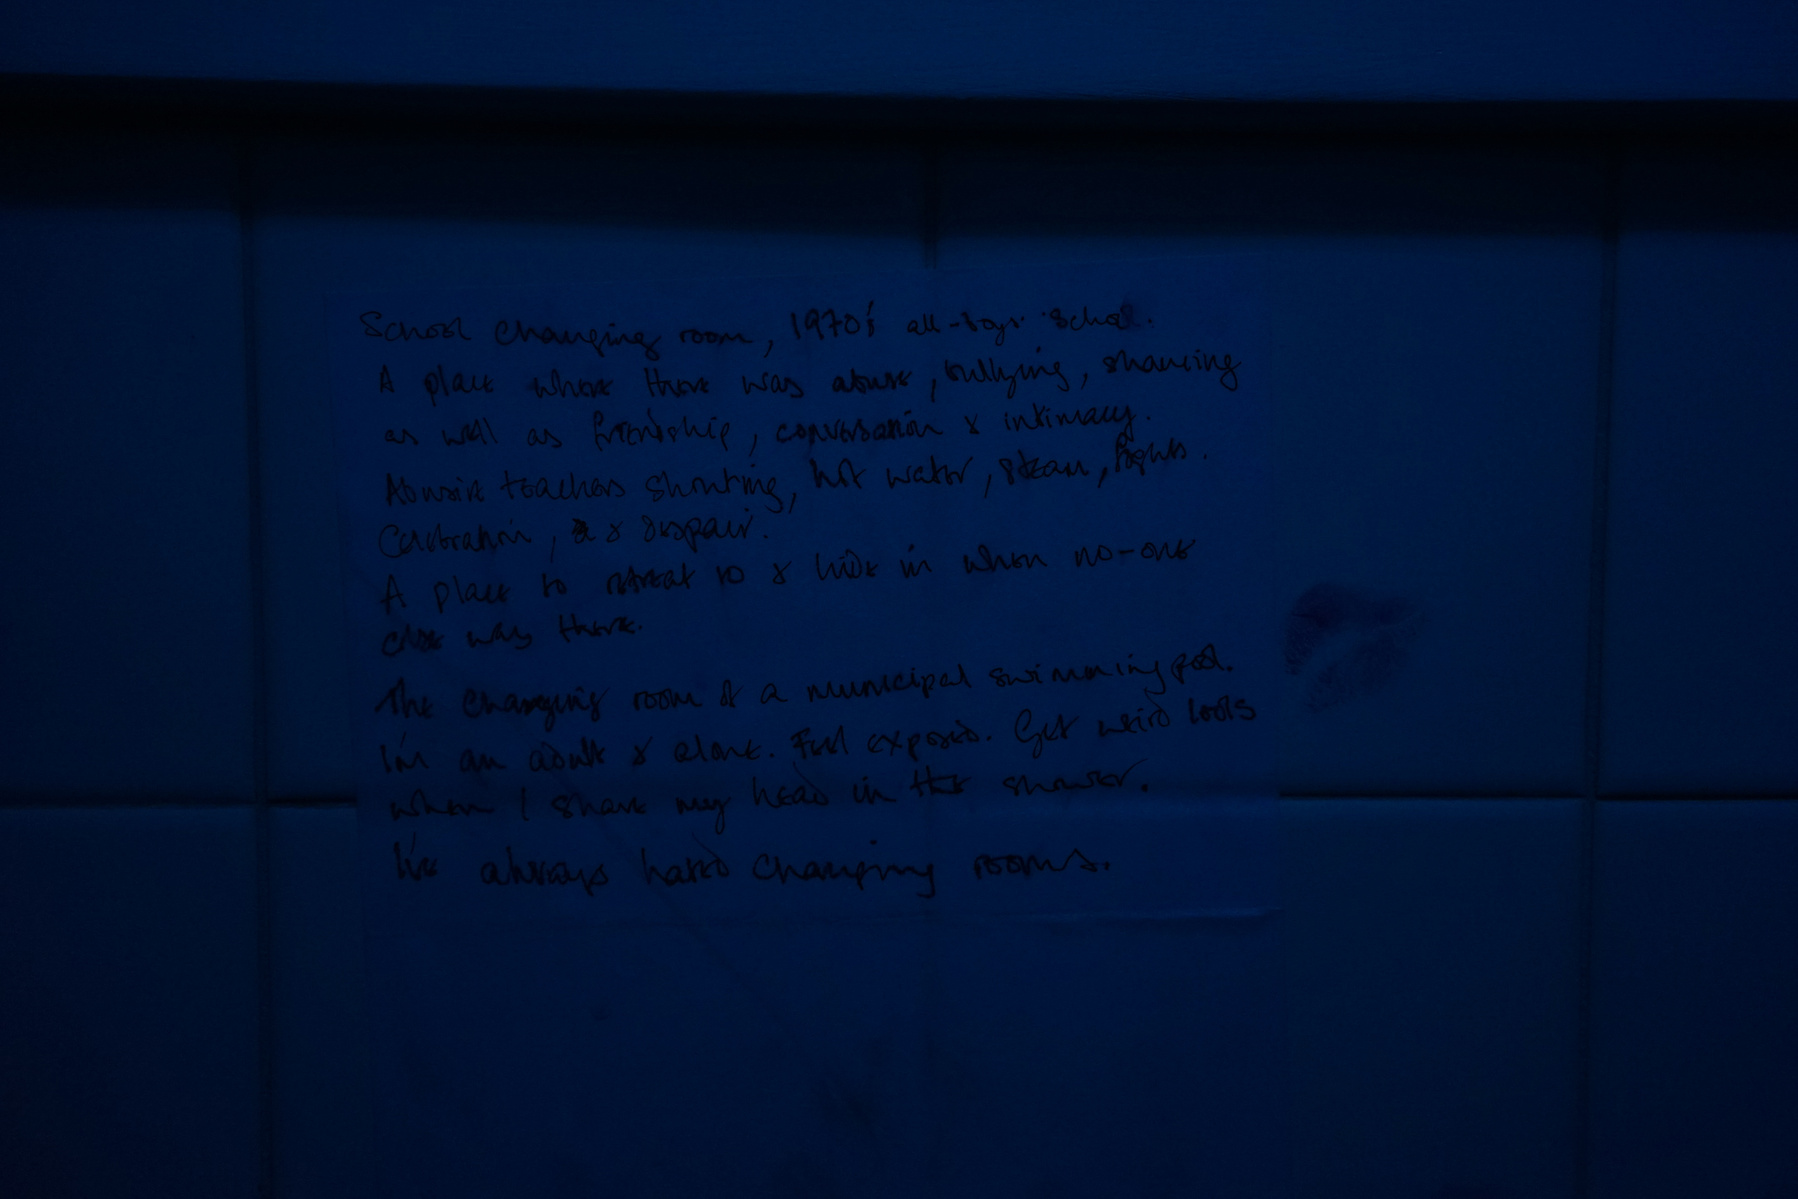 School changing room, 1970's all-boys school.
A place where there was abuse, bullying, shaming
as well as friendship, conversation & intimacy.
Abusive teachers shouting, hot water, steam, fights.
Celebration, & despair.
A place to retreat to & hide in when no-one
else was there.
The changing room of a municipal swimming pool.
I'm an adult & alone. Feel exposed. Get weird looks
when I shave my head in the shower.
I've always hated changing rooms.